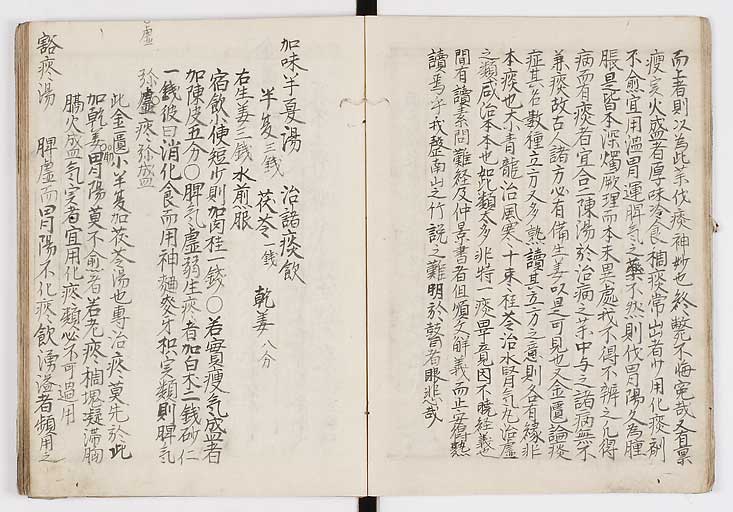 而上者則以為此茱伐痰神妙也終斃不悔寃哉又有禀
瘦之火盛者厚味冷食稠痰常出者少用化痰剤
不愈宜用温胃運脾之藥不然則伐胃陽多為腫
脹是皆本深燭厥理而本末異處我不得不辨之凡得
病而有痰者宜合二陳湯於治病之茱中与之諸病無不
兼痰故古人諸方必有備生姜以是可見也又金匱論痰
症其名数種立方又多熟讀其立方之意則各有縁非
本痰也大小青龍治風寒十棗桂苓治水腎气丸治虚
之類咸治本本也如此類太多非特痰畢竟因不暁経義近
間有讀素問難経及仲景書者但順文解義而止若熟
讀焉乎我罄南山之竹說之難明於瞽者眼悲哉
加味半夏湯 治諸痰飲
半夏三錢 茯苓一錢 乾姜八分
右生姜三錢水煎服
宿飲小便短少則加肉桂一錢〇若實瘦气盛者
加陳皮五分〇脾气虚弱生痰者加白朮二錢砂仁
一錢彼曰消化食而用神麯麥牙枳实類則脾气
弥虚痰弥盛
此金匱小半夏加茯苓湯也專治痰莫先於此
加乾姜胃陽莫不愈者若老痰稠塊凝滞胸
膈火盛气实者宜用化痰類必不可過用
豁痰湯 脾虚而胃陽不化痰飲湧溢者頻用之